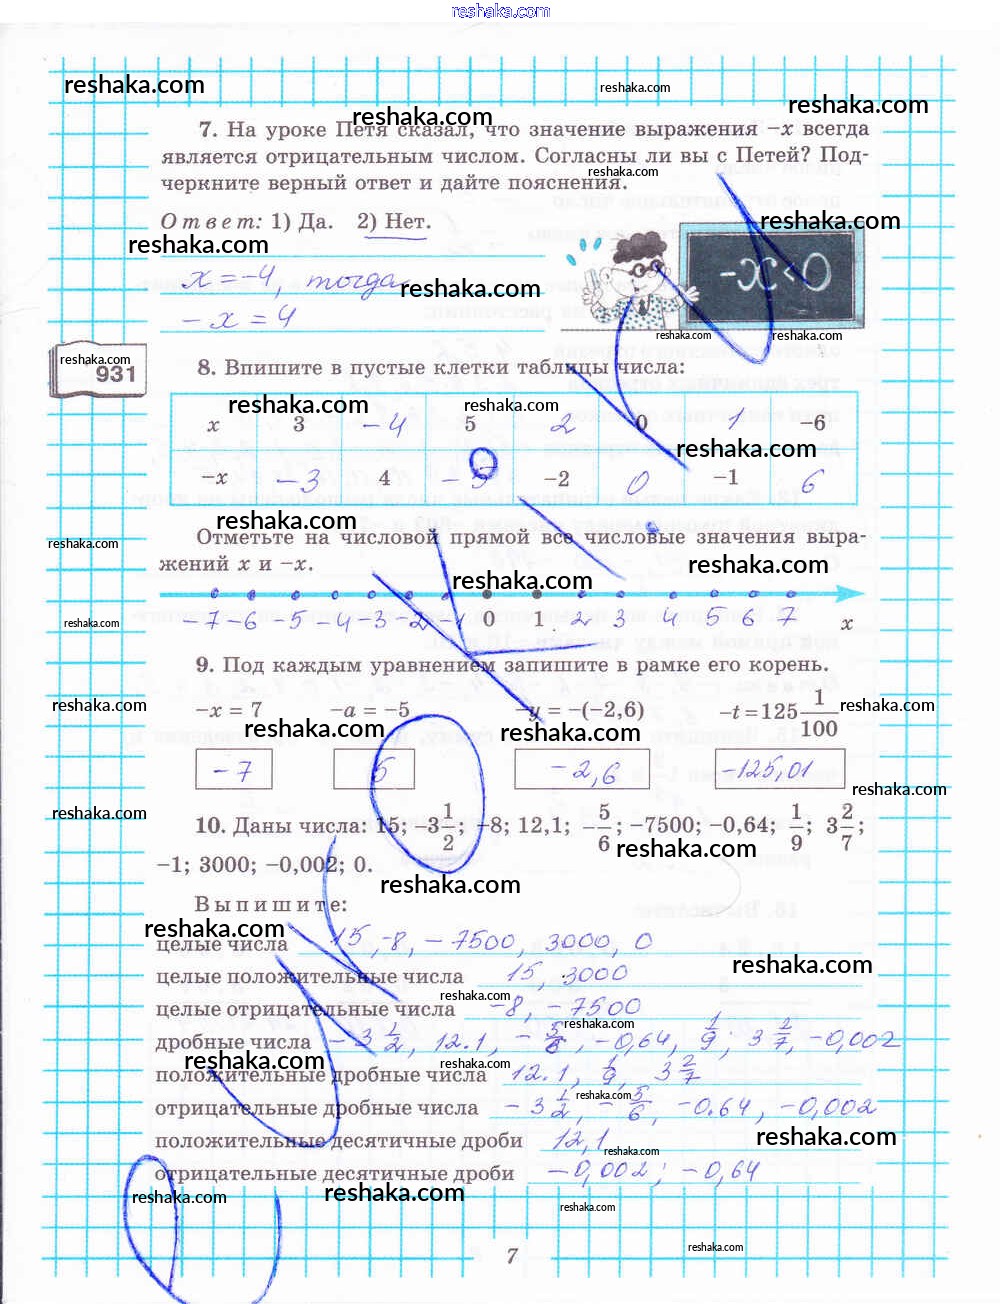 reshaka.com
reshaka.com
reshaka.com
reshaka.com
reshaka.com
7. На уроке Петя сказал, что значение выражения –x всегда
является отрицательным числом. Согласны ли вы с Петей? Под-
черкните верный ответ и дайте пояснения.
reshaka.com
Ответ: 1) Да. 2) Нет.
reshaka.com
reshaka.com
x = -4, тогда
- x = 4
reshaka.com
-x<0
reshaka.com
reshaka.com
reshaka.com
931
8. Впишите в пустые клетки таблицы числа:
reshaka.com
reshaka.com
x 3 -4 5 2 0 1 –6
reshaka.com
–x -3 4 -5 –2 0 –1 6
reshaka.com
Отметьте на числовой прямой все числовые значения выра-
reshaka.com
жений x и –x.
reshaka.com
reshaka.com
-7 -6 -5 -4 -3 -2 -1 0 1 2 3 4 5 6 7 x
reshaka.com
9. Под каждым уравнением запишите в рамке его корень.
–x = 7 –a = –5 –y = –(–2,6) –t = 125 1/100
reshaka.com
reshaka.com
reshaka.com
reshaka.com
-7 5 -2,6 -125,01
reshaka.com
reshaka.com
10. Даны числа: 15; –3 1/2; –8; 12,1; –5/6; –7500; –0,64; 1/9; 3 2/7;
reshaka.com
–1; 3000; –0,002; 0.
reshaka.com
Выпишите:
reshaka.com
целые числа 15, -8, -7500, 3000, 0
reshaka.com
целые положительные числа 15, 3000
reshaka.com
целые отрицательные числа -8, -7500
reshaka.com
дробные числа -3 1/2, 12.1, -5/6, -0,64, 1/9; 3 2/7, -0,002
reshaka.com
reshaka.com
положительные дробные числа 12.1, 1/9, 3 2/7
reshaka.com
отрицательные дробные числа -3 1/2, -5/6, -0.64, -0,002
reshaka.com
положительные десятичные дроби 12,1
reshaka.com
отрицательные десятичные дроби -0,002; -0,64
reshaka.com
reshaka.com
reshaka.com
reshaka.com
7